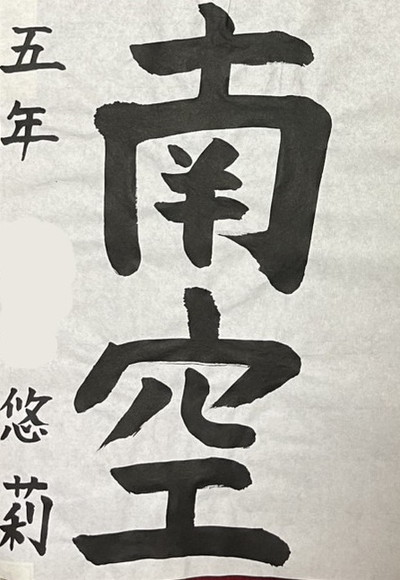 南空
五年 悠莉